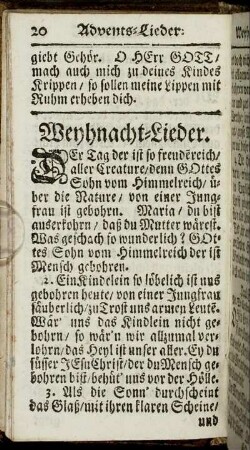 20 Advents-Lieder:
giebt Gehör. O HErr GOTT/
mach auch mich zu deines Kindes
Krippen/ so sollen meine Lippen mit
Ruhm erheben dich.
Weyhnacht-Lieder.
DEr Tag der ist so freudẽreich/
aller Creature/ denn GOttes
Sohn vom Himmelreich/ ü-
ber die Nature/ von einer Jung-
frau ist gebohrn. Maria/ du bist
auserkohrn/ daß du Mutter wärest.
Was geschach so wunderlich? GOt-
tes Sohn vom Himmelreich der ist
Mensch gebohren.
2. Ein Kindelein so löbelich ist uns
gebohren heute/ von einer Jungfrau
säuberlich/ zu Trost uns armen Leutẽ.
Wär' uns das Kindlein nicht ge-
bohrn/ so wär'n wir allzumal ver-
lohrn/ das Heyl ist unser aller. Ey du
süsser JEsu Christ/ der du Mensch ge-
bohren bist/ behüt' uns vor der Hölle.
3. Als die Sonn' durchscheint
das Glaß/ mit ihren klaren Scheine/
und